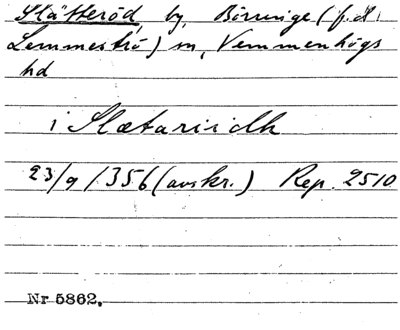 Slätteröd by, Börringe (f.d.
Lemmeströ) sn, Vemmenhögs
hd
i Slætariidh
23/9 1356 (avskr.) Rep. 2510
Nr 5862.